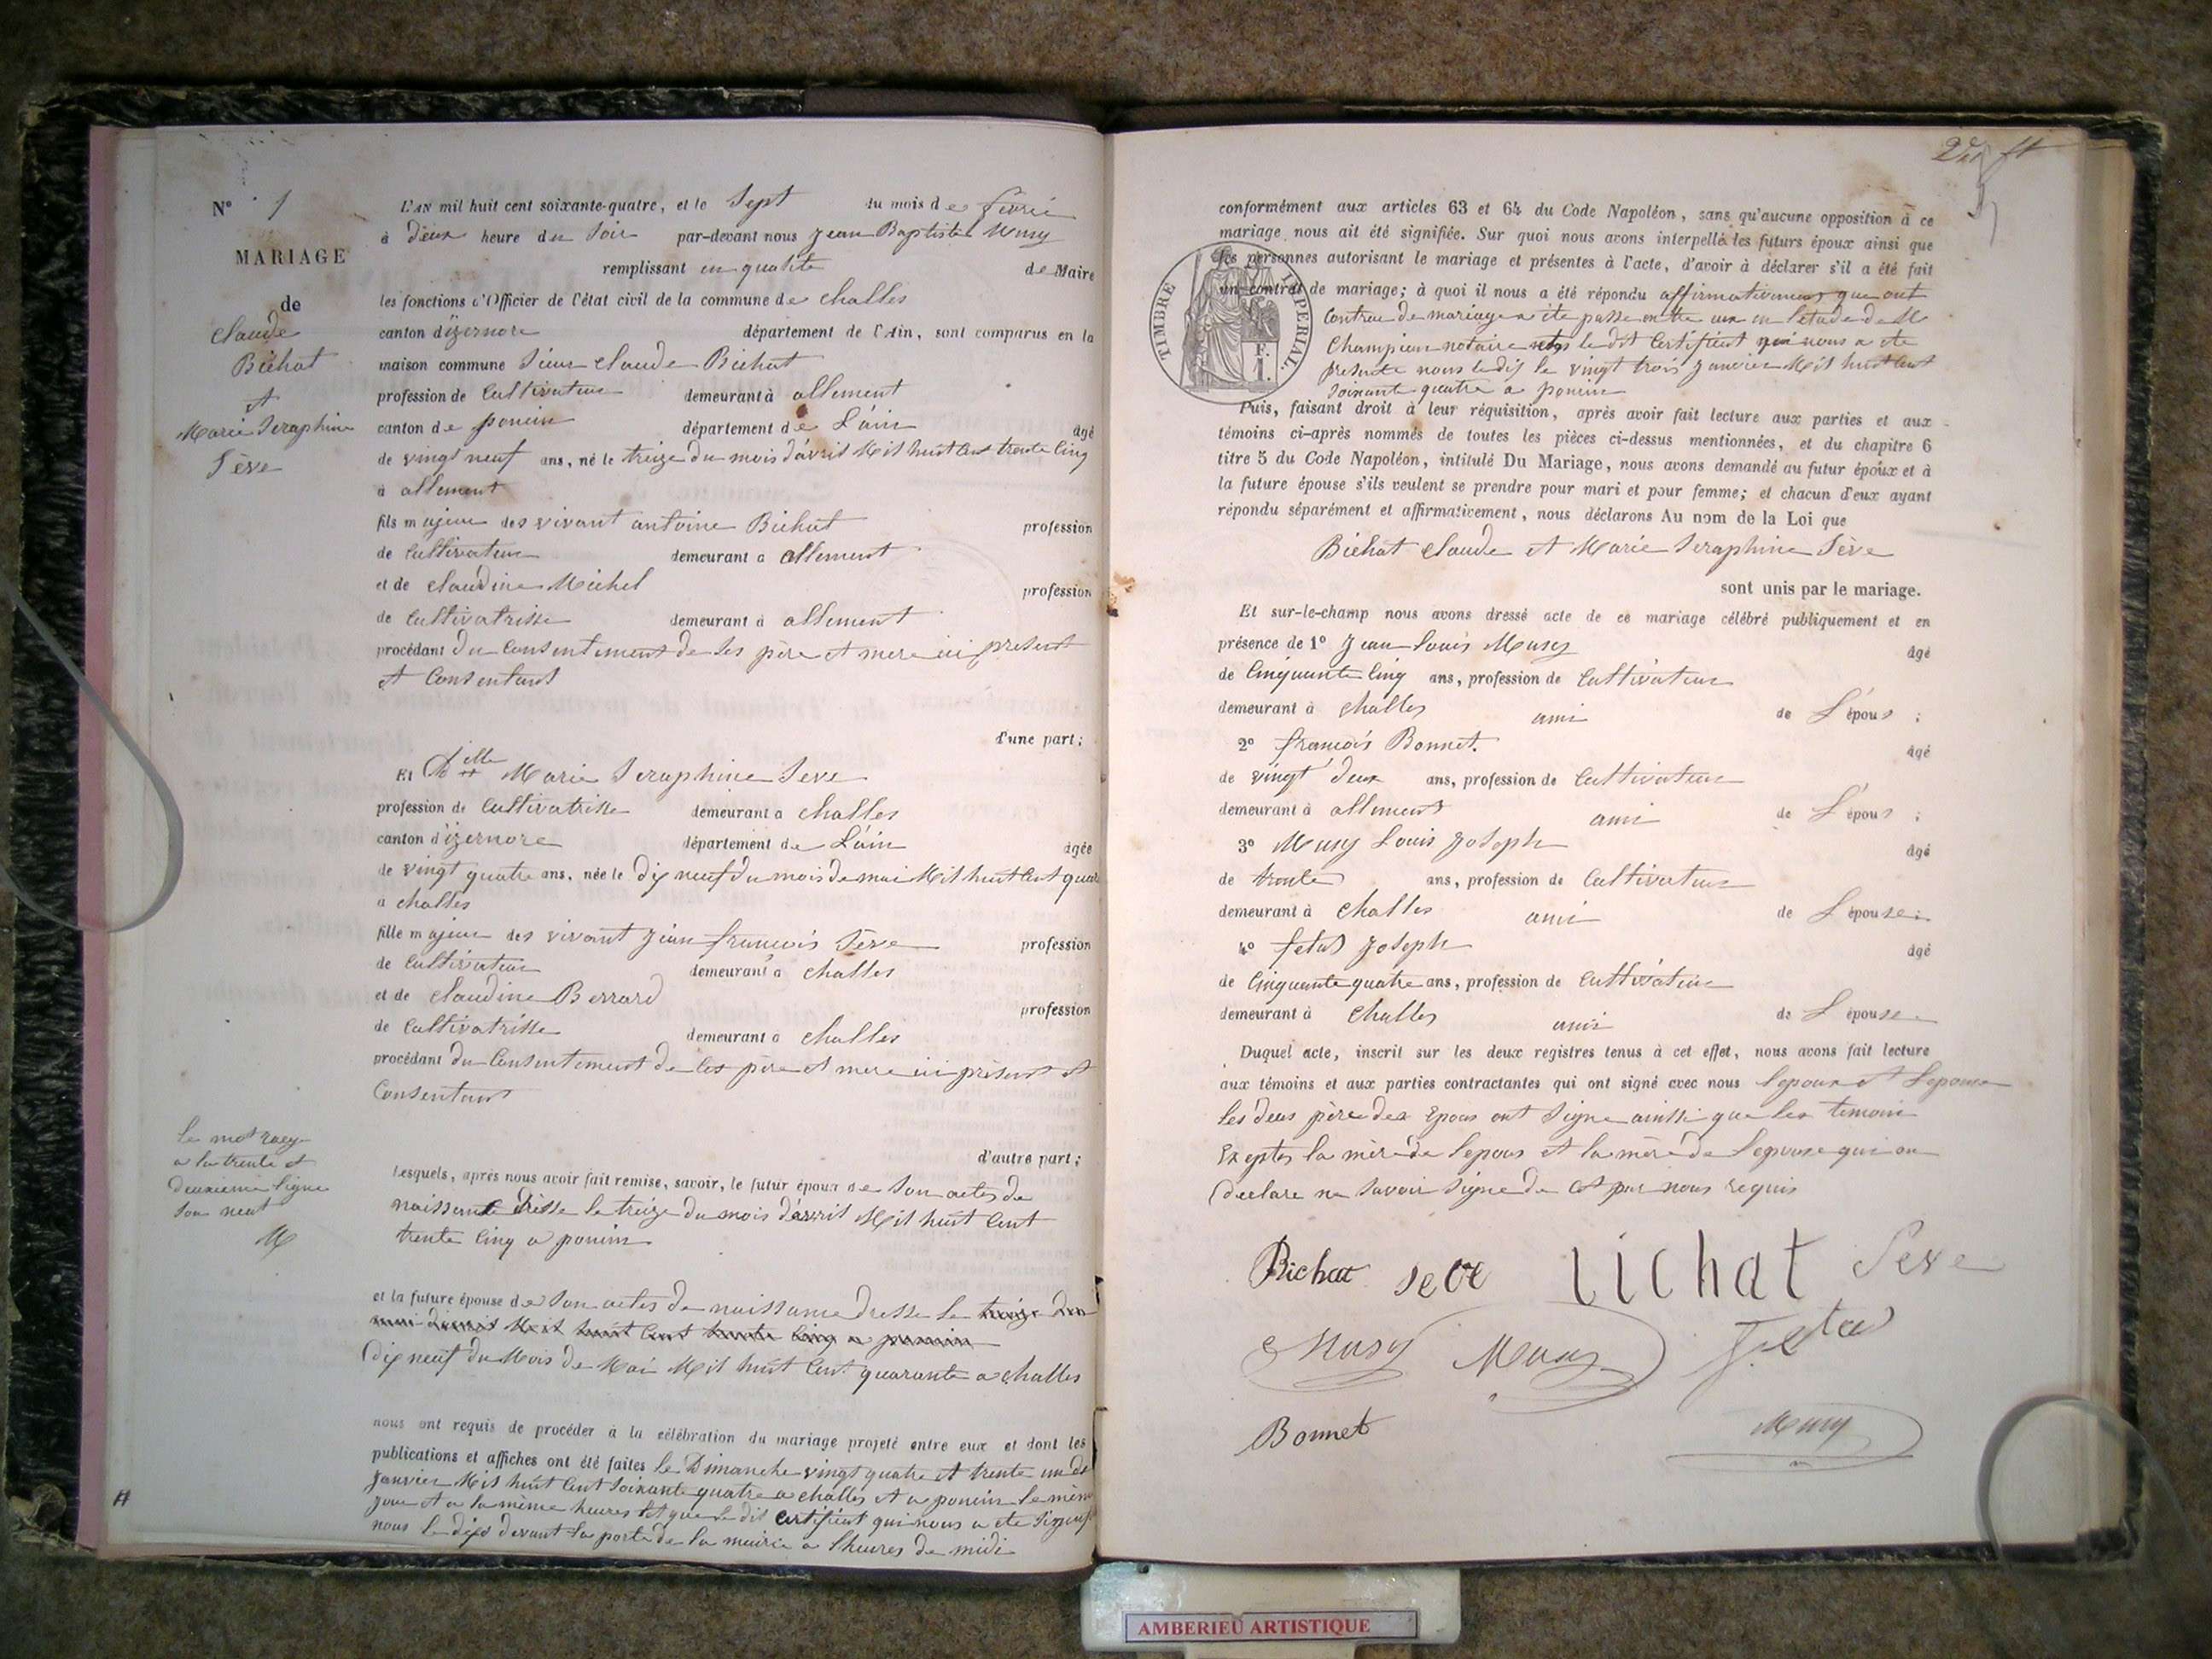 N° 1
MARIAGE
de
Claude
Bichat
et
Marie Seraphine
Sève
L'AN mil huit cent soixante-quatre, et le Sept du mois de fevrié
à deux heure du Soir par-devant nous Jean Baptiste Musy
remplissant en qualité de Maire
les fonctions d'Officier de l'état civil de la commune de Challes
canton d'izernore département de l'Ain, sont comparus en la
maison commune Sieur Claude Bichat
profession de Cultivateur demeurant à allement
canton de poncin département de L'ain âgé
de vingt neuf ans, né le treize du mois d'avril Mil huit Cent trente Cinq
à allement
fils majeur des vivant antoine Bichat profession
de Cultivateur demeurant à allement
et de Claudine Michel profession
de Cultivatrisse demeurant à allement
procédant du Consentement de Ses père et mere ici présent
et Consentant
d'une part;
Et Dlle Marie Seraphine Seve
profession de Cultivatrisse demeurant à Challes
canton d'izernore département de L'ain âgée
de vingt quatre ans, née le dix neuf du mois de mai Mil huit Cent quar
à Challes
fille majeur des vivant Jean françois Sève profession
de Cultivateur demeurant à Challes
et de Claudine Berrard profession
de Cultivatrisse demeurant à Challes
procédant du Consentement de Ces père et mere ici présent et
Consentant
d'autre part;
le mot raey
a la trente et
deuxieme ligne
son neut
M
Lesquels, après nous avoir fait remise, savoir, le futur époux de Son actes de
naissance dresse le treize du mois d'avril Mil huit Cent
trente Cinq a poncin
et la future épouse de Son actes de naissance dresse le treize du
mois d'avril Mil huit Cent trente Cinq a poncin
dix neuf du Mois de Mai Mil huit Cent quarante a Challes
nous ont requis de procéder à la célébration du mariage projeté entre eux et dont les
publications et affiches ont été faites le Dimanche vingt quatre et trente un de
Janvier Mil huit Cent Soixante quatre a Challes et a poncin le même
jour et a la même heures tel que le dit Certificat qui nous a ete
nous devant la porte de la mairie a Lheures de midi
conformément aux articles 63 et 64 du Code Napoléon, sans qu'aucune opposition à ce
mariage nous ait été signifiée. Sur quoi nous avons interpellé les futurs époux ainsi que
les personnes autorisant le mariage et présentes à l'acte, d'avoir à déclarer s'il a été fait
un contrat de mariage; à quoi il nous a été répondu affirmativement que ont
Contrat de mariage a été passe entre eux en l'etude de Me
Champion notaire le dit Certificat qui nous a ete
presente nous le dis le vingt trois Janvier Mil huit Cent
Soixante quatre a poncin
TIMBRE IMPERIAL
1 F.
Puis, faisant droit à leur réquisition, après avoir fait lecture aux parties et aux
témoins ci-après nommés de toutes les pièces ci-dessus mentionnées, et du chapitre 6
titre 5 du Code Napoléon, intitulé Du Mariage, nous avons demandé au futur époux et à
la future épouse s'ils veulent se prendre pour mari et pour femme; et chacun d'eux ayant
répondu séparément et affirmativement, nous déclarons Au nom de la Loi que
Bichat Claude et Marie Seraphine Sève
sont unis par le mariage.
Et sur-le-champ nous avons dressé acte de ce mariage célébré publiquement et en
présence de 1° Jean Louis Musy âgé
de Cinquante Cinq ans, profession de Cultivateur
demeurant à Challes ami de L'épous ;
2° françois Bonnet. âgé
de vingt deux ans, profession de Cultivateur
demeurant à allement ami de L'épous ;
3° Musy Louis Joseph âgé
de trente ans, profession de Cultivateur
demeurant à Challes ami de L'épouse;
4° fetas Joseph âgé
de Cinquante quatre ans, profession de Cultivateur
demeurant à Challes ami de L'épouse
Duquel acte, inscrit sur les deux registres tenus à cet effet, nous avons fait lecture
aux témoins et aux parties contractantes qui ont signé avec nous L'epoux et L'epouse
les deus père des Epous ont Signe ainssi que les temoin
Exeptes la mère de l'epous et la mère de l'epouse qui on
declare ne Savoir Signe de Ce par nous requis
Bichat Seve Bichat Seve
Musy Musy Feta
Bonnet Musy
AMBERIEU ARTISTIQUE